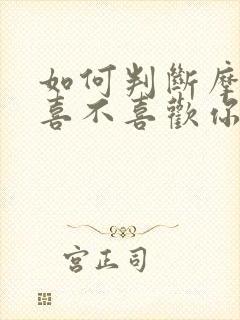 如何判斷摩
喜不喜歡你
宮正司